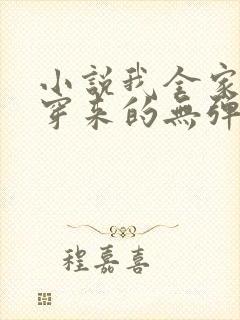 小説我全家
穿來的無彈
程嘉喜